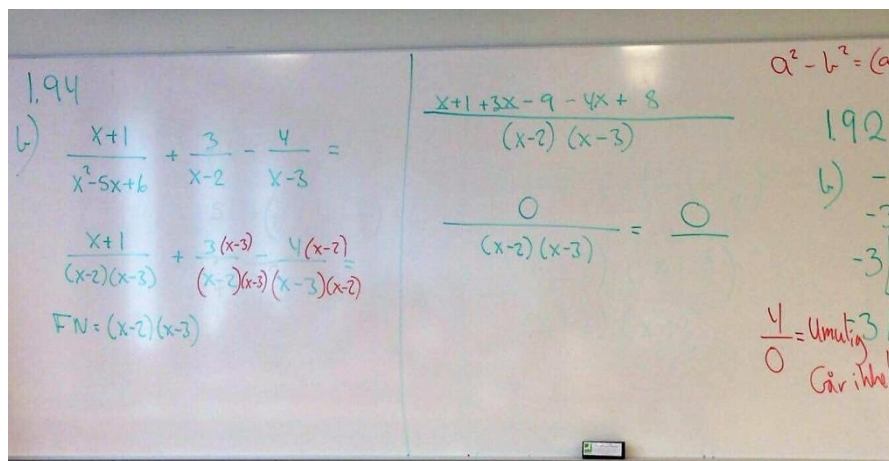 1.94
b) (x+1)/(x²-5x+6) + 3/(x-2) - 4/(x-3) =
(x+1)/((x-2)(x-3)) + 3(x-3)/((x-2)(x-3)) - 4(x-2)/((x-3)(x-2)) =
FN = (x-2)(x-3)
(x+1+3x-9-4x+8)/((x-2)(x-3))
0/((x-2)(x-3)) = 0
a²-b² = (a
1.92
b) -
-3
-3
4/0 = Umulig
Går ikke